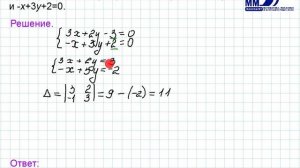 и -x+3y+2=0.
MM
Решение.
3x+2y-3=0
-x+3y+2=0
3x+2y=
-x+3y= 2
Δ = |3 2| = 9-(-2) = 11
|-1 3|
Ответ: